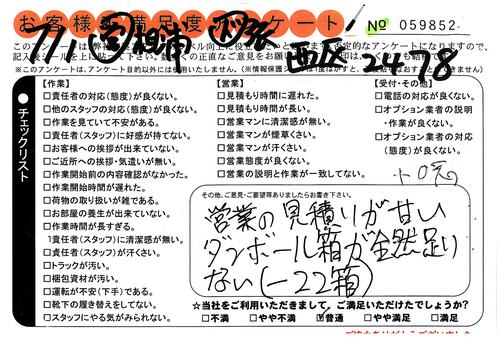 お客様満足度アンケート
№ 059852
このアンケートは
※このアンケートは、アンケート目的以外には使用いたしません。
24-78
チェックリスト
【作業】
□責任者の対応(態度)が良くない。
□他のスタッフの対応(態度)が良くない。
□作業を見ていて不安がある。
□責任者(スタッフ)に好感が持てない。
□お客様への挨拶が出来ていない。
□ご近所への挨拶・気遣いが無い。
□作業開始前の内容確認がなかった。
□作業開始時間が遅れた。
□荷物の取り扱いが雑である。
□お部屋の養生が出来ていない。
□作業時間が長すぎる。
□責任者(スタッフ)に清潔感が無い。
□責任者(スタッフ)が汗くさい。
□トラックが汚い。
□梱包資材が汚い。
□運転が不安(下手)である。
□靴下の履き替えをしてない。
□スタッフにやる気がみられない。
【営業】
□見積もり時間に遅れた。
□見積もり時間が長い。
□営業マンに清潔感が無い。
□営業マンが煙草くさい。
□営業マンが汗くさい。
□営業態度が良くない。
□営業の説明と作業が一致してない。
【受付・その他】
□電話の対応が良くない。
□オプション業者の説明
・作業が良くない。
□オプション業者の対応
(態度)が良くない。
その他、ご意見・ご要望等ありましたらお書き下さい。
営業の見積りが甘い
ダンボール箱が全然足り
ない(-22箱)
☆当社をご利用いただきまして、ご満足いただけたでしょうか?
□不満 □やや不満 ☑普通 □やや満足 □満足